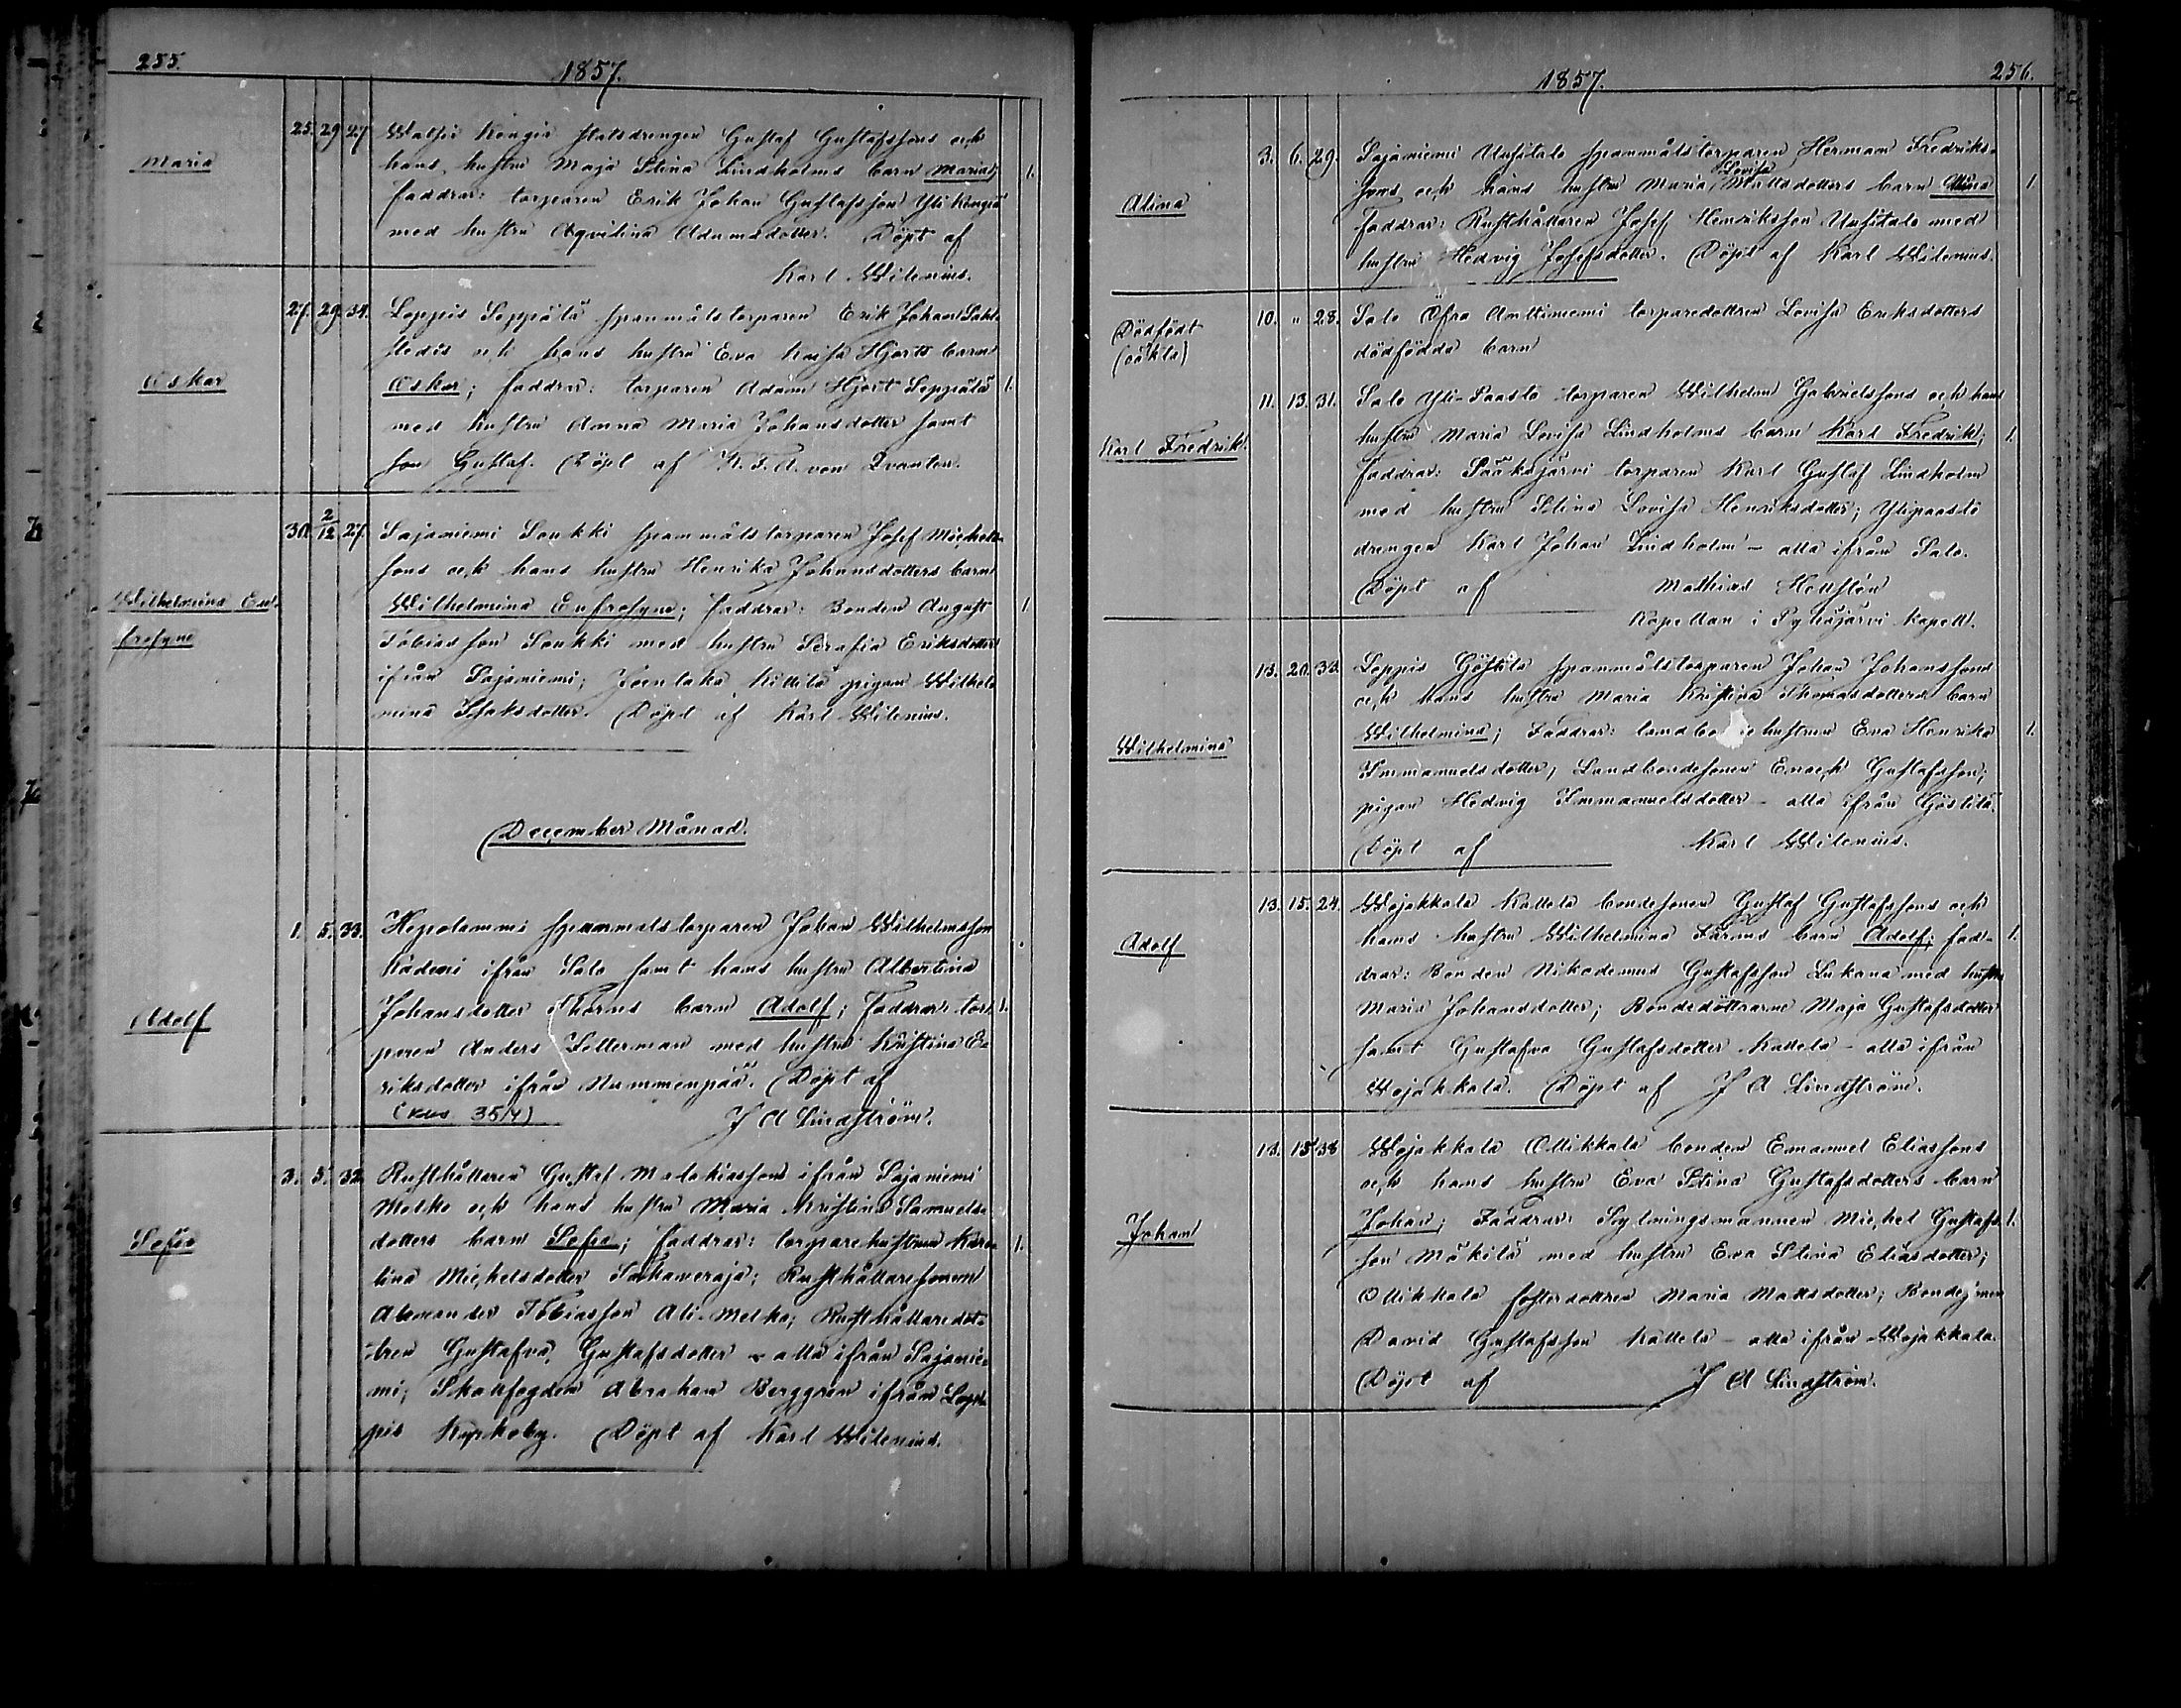 255.
1857.
Maria
25. 29. 27. Watsia Kongin statsdrengen Gustaf Gustafssons och
hans hustru Maja Stina Lindholms barn Maria; 1.
faddrar: torparen Erik Johan Gustafsson Yli Kongin
med hustru Aqvilina Adamsdotter. Döpt af
Karl Wilenius.
Oskar
27. 29. 34. Loppis Seppälä spanmålstorparen Erik Johan
och hans hustru Eva Kaisa Hjorts barn
Oskar; faddrar: torparen Adam Hjort Seppälä 1.
med hustru Anna Maria Johansdotter samt
son Gustaf. Döpt af K. F. A. von Qvanten.
Wilhelmina Eu-
frosyne
30. 2/12 27. Sajaniemi Soukki spanmålstorparen Josef Michels-
sons och hans hustru Henrika Johansdotters barn
Wilhelmina Eufrosyne; faddrar: Bonden August 1.
Tobiasson Soukki med hustru Serafia Eriksdotter
ifrån Sajaniemi; Joenlaka Kittilä pigan Wilhel-
mina Isaksdotter. Döpt af Karl Wilenius.
December Månad.
Adolf
1. 5. 33. Hepolammi spanmålstorparen Johan Wilhelmsson
ifrån Salo samt hans hustru Albertina
Johansdotter Thorns barn Adolf; Faddrar: tor- 1.
paren Anders Setterman med hustru Kristina E-
riksdotter ifrån Nummenpää. Döpt af
(kus 35/4) J A Lindström.
Sofia
3. 5. 32. Rusthållaren Gustaf Malakiassons ifrån Sajaniemi
Melko och hans hustru Maria Kristina Samuels-
dotters barn Sofia; faddrar: torparehustrun Karo- 1.
lina Michelsdotter; Rusthållaresonen
Alexander Tobiasson Ali-Melko; Rusthållaredot-
tren Gustafva Gustafsdotter - alla ifrån Sajanie-
mi; Skallfogden Abraham Berggren ifrån Lop-
pis Kyrkoby. Döpt af Karl Wilenius.
1857.
256.
Alina
3. 6. 29. Sajaniemi Uusitalo spanmålstorparen Herman Fredriks-
Lovisa
sons och hans hustru Maria Mattsdotters barn Alina 1.
faddrar: Rusthållaren Josef Henriksson Uusitalo med
hustru Hedvig Josefsdotter. Döpt af Karl Wilenius.
Dödfödt
(oäkta)
10. " 28. Salo Öfra Anttiniemi torparedottren Lovisa Eriksdotters
dödfödda barn
Karl Fredrik
11. 13. 31. Salo Yli-Paasto torparen Wilhelm Gabrielssons och hans
hustru Maria Lovisa Lindholms barn Karl Fredrik; 1.
Faddrar: Sääksjärvi torparen Karl Gustaf Lindholm
med hustru Stina Lovisa Henriksdotter; Ylipaasto
drengen Karl Johan Lindholm - alla ifrån Salo.
Döpt af Mathias Hellstén
Kapellan i Pyhäjärvi kapell.
Wilhelmina
13. 20. 33. Loppis Göstilä spanmålstorparen Johan Johanssons
och hans hustru Maria Kristina Thomasdotters barn
Wilhelmina; Faddrar: landbondehustrun Eva Henrika 1.
Immanuelsdotter, Landbondesonen Enoch Gustafsson;
pigan Hedvig Immanuelsdotter - alla ifrån Göstilä.
Döpt af Karl Wilenius.
Adolf
13. 15. 24. Wojakkala Kattela bondesonen Gustaf Gustafssons och
hans hustru Wilhelmina Färms barn Adolf; fad- 1.
drar: Bonden Nikodemus Gustafsson Lukana med hustru
Maria Johansdotter; Bondedöttrarne Maja Gustafsdotter
samt Gustafva Gustafsdotter Kattela - alla ifrån
Wojakkala. Döpt af J A Lindström.
Johan
13. 15. 38. Wojakkala Ollikkala bonden Emanuel Eliassons
och hans hustru Eva Stina Gustafsdotters barn
Johan; Faddrar: Sysslningsmannen Michel Gustafs- 1.
son Mäkilä med hustru Eva Stina Eliasdotter;
Ollikkala fosterdottren Maria Mattsdotter; Bondesonen
David Gustafsson Kattela - alla ifrån Wojakkala.
Döpt af J A Lindström.